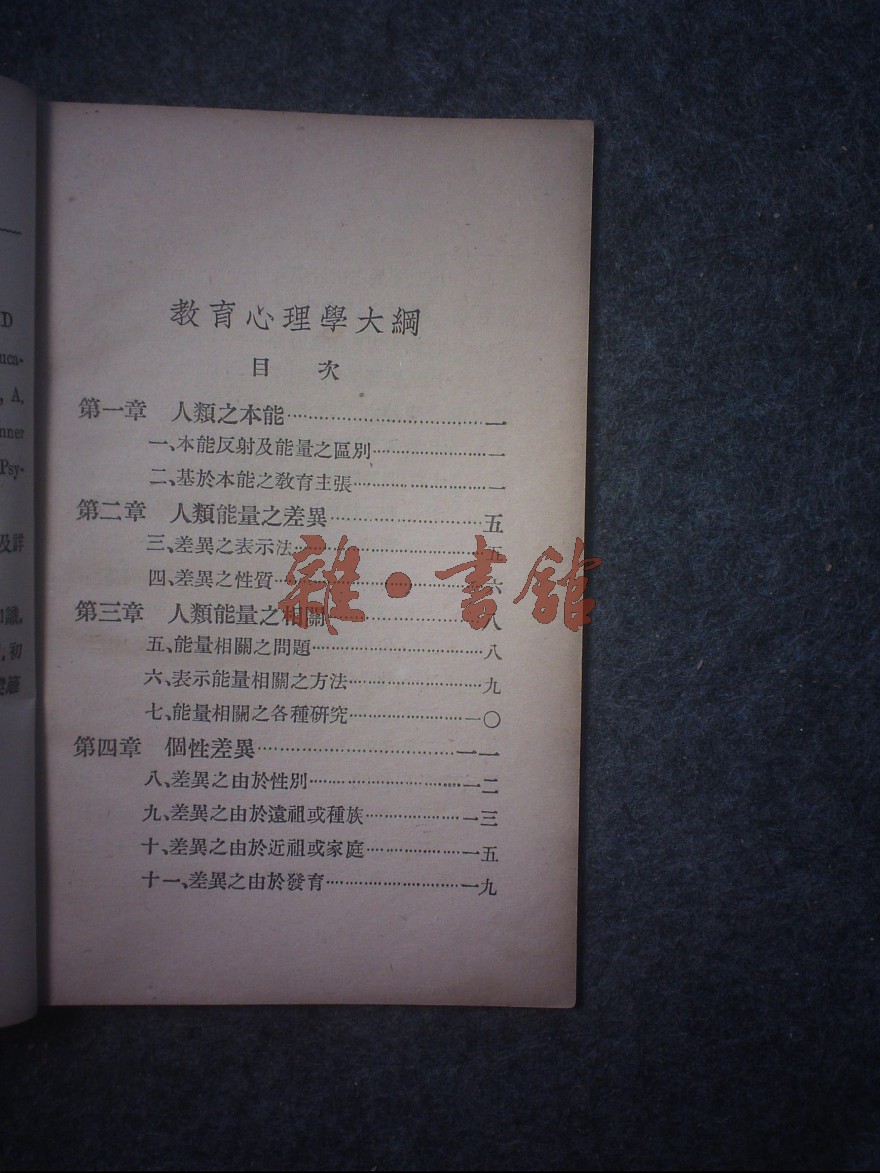 D
uca-
, A.
nner
Psy-
及詳
識,
,初
教育心理學大綱
目 次
第一章 人類之本能…………………………一
一、本能反射及能量之區別…………………一
二、基於本能之敎育主張……………………一
第二章 人類能量之差異……………………五
三、差異之表示法……………………………五
四、差異之性質………………………………六
第三章 人類能量之相關……………………八
五、能量相關之問題…………………………八
六、表示能量相關之方法……………………九
七、能量相關之各種研究……………………一〇
第四章 個性差異……………………………一一
八、差異之由於性別…………………………一二
九、差異之由於遠祖或種族…………………一三
十、差異之由於近祖或家庭…………………一五
十一、差異之由於發育………………………一九
雜·書館